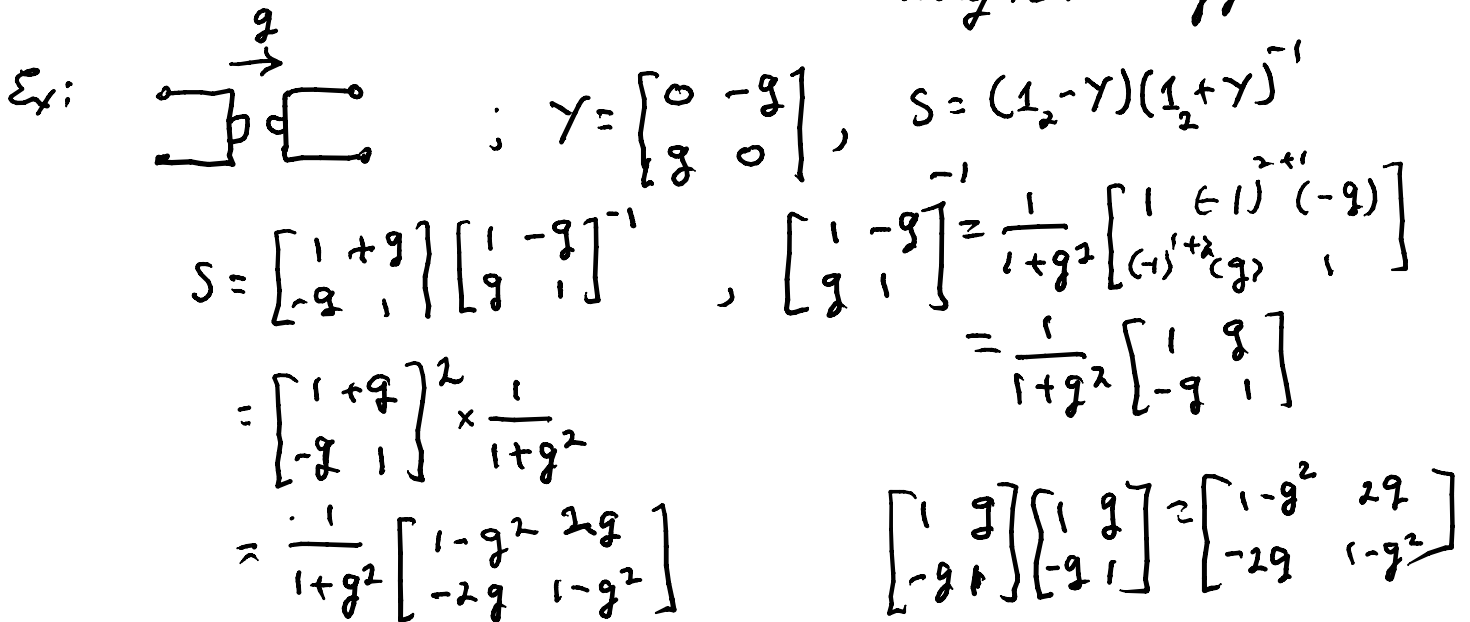 g
Ex: ; Y = [0 -g; g 0], S = (1₂ - Y)(1₂ + Y)⁻¹
S = [1 +g; -g 1] [1 -g; g 1]⁻¹ , [1 -g; g 1]⁻¹ = 1/(1+g²) [1 (-1)²⁺¹(-g); (-1)¹⁺²(g) 1]
= 1/(1+g²) [1 g; -g 1]
= [1 +g; -g 1]² × 1/(1+g²)
= 1/(1+g²) [1-g² 2g; -2g 1-g²]
[1 g; -g 1] [1 g; -g 1] = [1-g² 2g; -2g 1-g²]